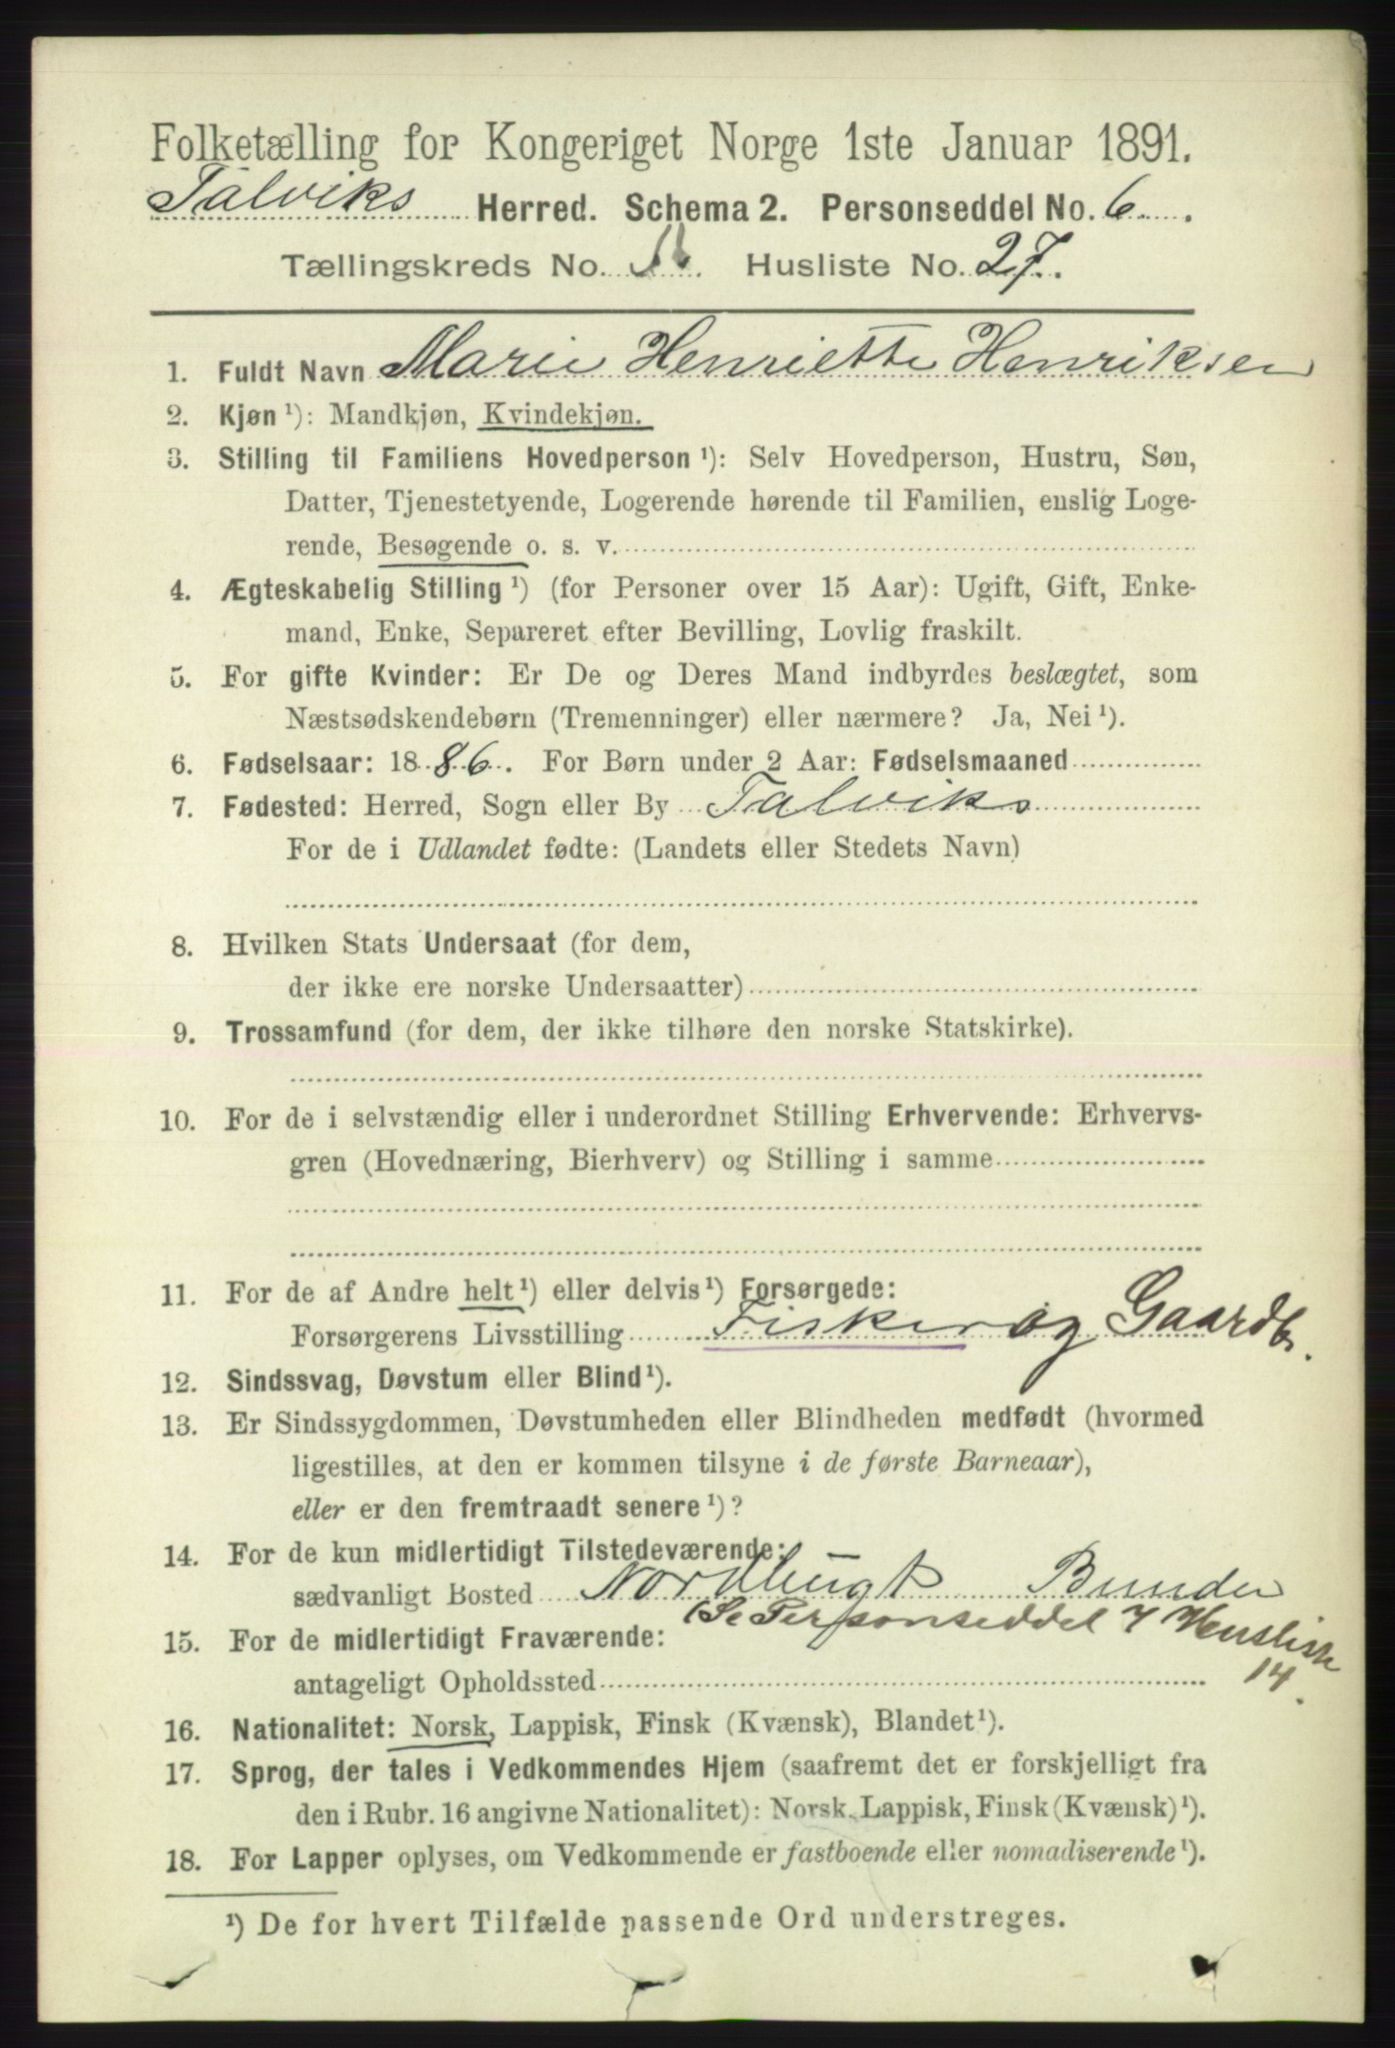 Folketælling for Kongeriget Norge 1ste Januar 1891.
Talviks Herred. Schema 2. Personseddel No. 6.
Tællingskreds No. Husliste No. 27.
1. Fuldt Navn Marie Henriette Henriksen
2. Kjøn ¹): Mandkjøn, Kvindekjøn.
3. Stilling til Familiens Hovedperson ¹): Selv Hovedperson, Hustru, Søn,
Datter, Tjenestetyende, Logerende hørende til Familien, enslig Loge-
rende, Besøgende o. s. v.
4. Ægteskabelig Stilling ¹) (for Personer over 15 Aar): Ugift, Gift, Enke-
mand, Enke, Separeret efter Bevilling, Lovlig fraskilt.
5. For gifte Kvinder: Er De og Deres Mand indbyrdes beslægtet, som
Næstsødskendebørn (Tremenninger) eller nærmere? Ja, Nei ¹).
6. Fødselsaar: 1886. For Børn under 2 Aar: Fødselsmaaned
7. Fødested: Herred, Sogn eller By Talviks
For de i Udlandet fødte: (Landets eller Stedets Navn)
8. Hvilken Stats Undersaat (for dem,
der ikke ere norske Undersaatter)
9. Trossamfund (for dem, der ikke tilhøre den norske Statskirke).
10. For de i selvstændig eller i underordnet Stilling Erhvervende: Erhvervs-
gren (Hovednæring, Bierhverv) og Stilling i samme
11. For de af Andre helt ¹) eller delvis ¹) Forsørgede:
Forsørgerens Livsstilling Fisker og Gaardb.
12. Sindssvag, Døvstum eller Blind ¹).
13. Er Sindssygdommen, Døvstumheden eller Blindheden medfødt (hvormed
ligestilles, at den er kommen tilsyne i de første Barneaar),
eller er den fremtraadt senere ¹)?
14. For de kun midlertidigt Tilstedeværende:
sædvanligt Bosted Nordbugt Bunden
(Se Personseddel 7 Husliste
15. For de midlertidigt Fraværende:
14.
antageligt Opholdssted
16. Nationalitet: Norsk, Lappisk, Finsk (Kvænsk), Blandet ¹).
17. Sprog, der tales i Vedkommendes Hjem (saafremt det er forskjelligt fra
den i Rubr. 16 angivne Nationalitet): Norsk, Lappisk, Finsk (Kvænsk) ¹).
18. For Lapper oplyses, om Vedkommende er fastboende eller nomadiserende ¹).
¹) De for hvert Tilfælde passende Ord understreges.